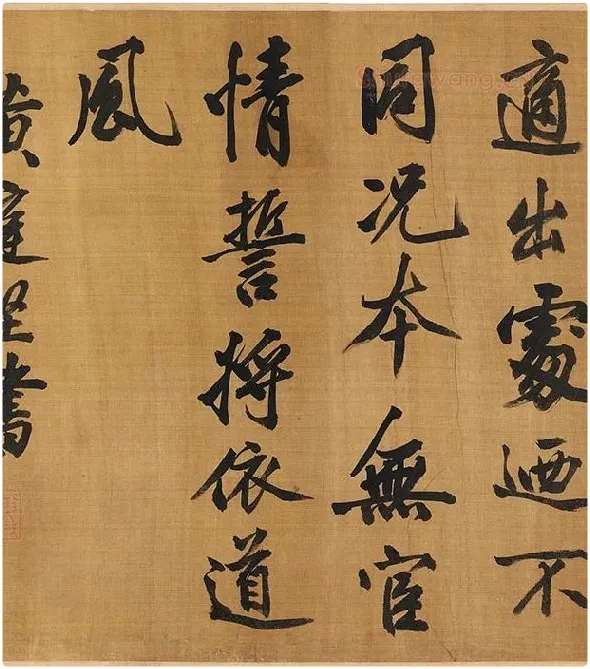 適出處迺不
同况本無宦
情誓將依道
風
黄庭堅書